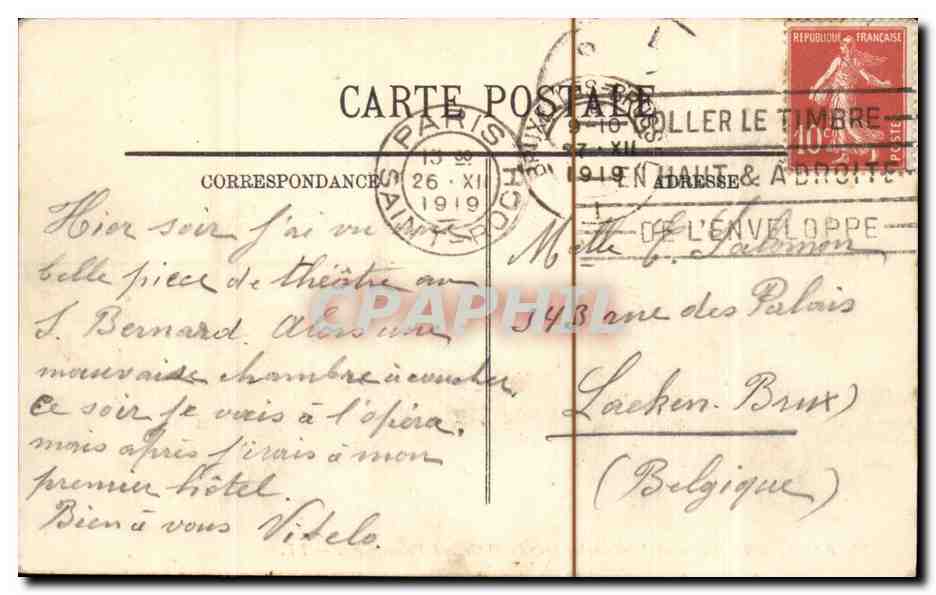 CARTE POSTALE
RÉPUBLIQUE FRANÇAISE
10c
POSTES
PARIS
13
26 · XII
1919
9-10
27 · XII
1919
COLLER LE TIMBRE
EN HAUT & A DROITE
DE L'ENVELOPPE
CORRESPONDANCE
ADRESSE
Hier soir j'ai vu une
belle piece de théôtre au
S. Bernard. Alors une
mauvaise chambre à coucher
ce soir je vais à l'opéra.
mais après j'irais à mon
premier hôtel.
Bien à vous Vitelo.
Melle C. Salomon
343 rue des Palais
Laeken-Brux)
(Belgique)
CPAPHIL